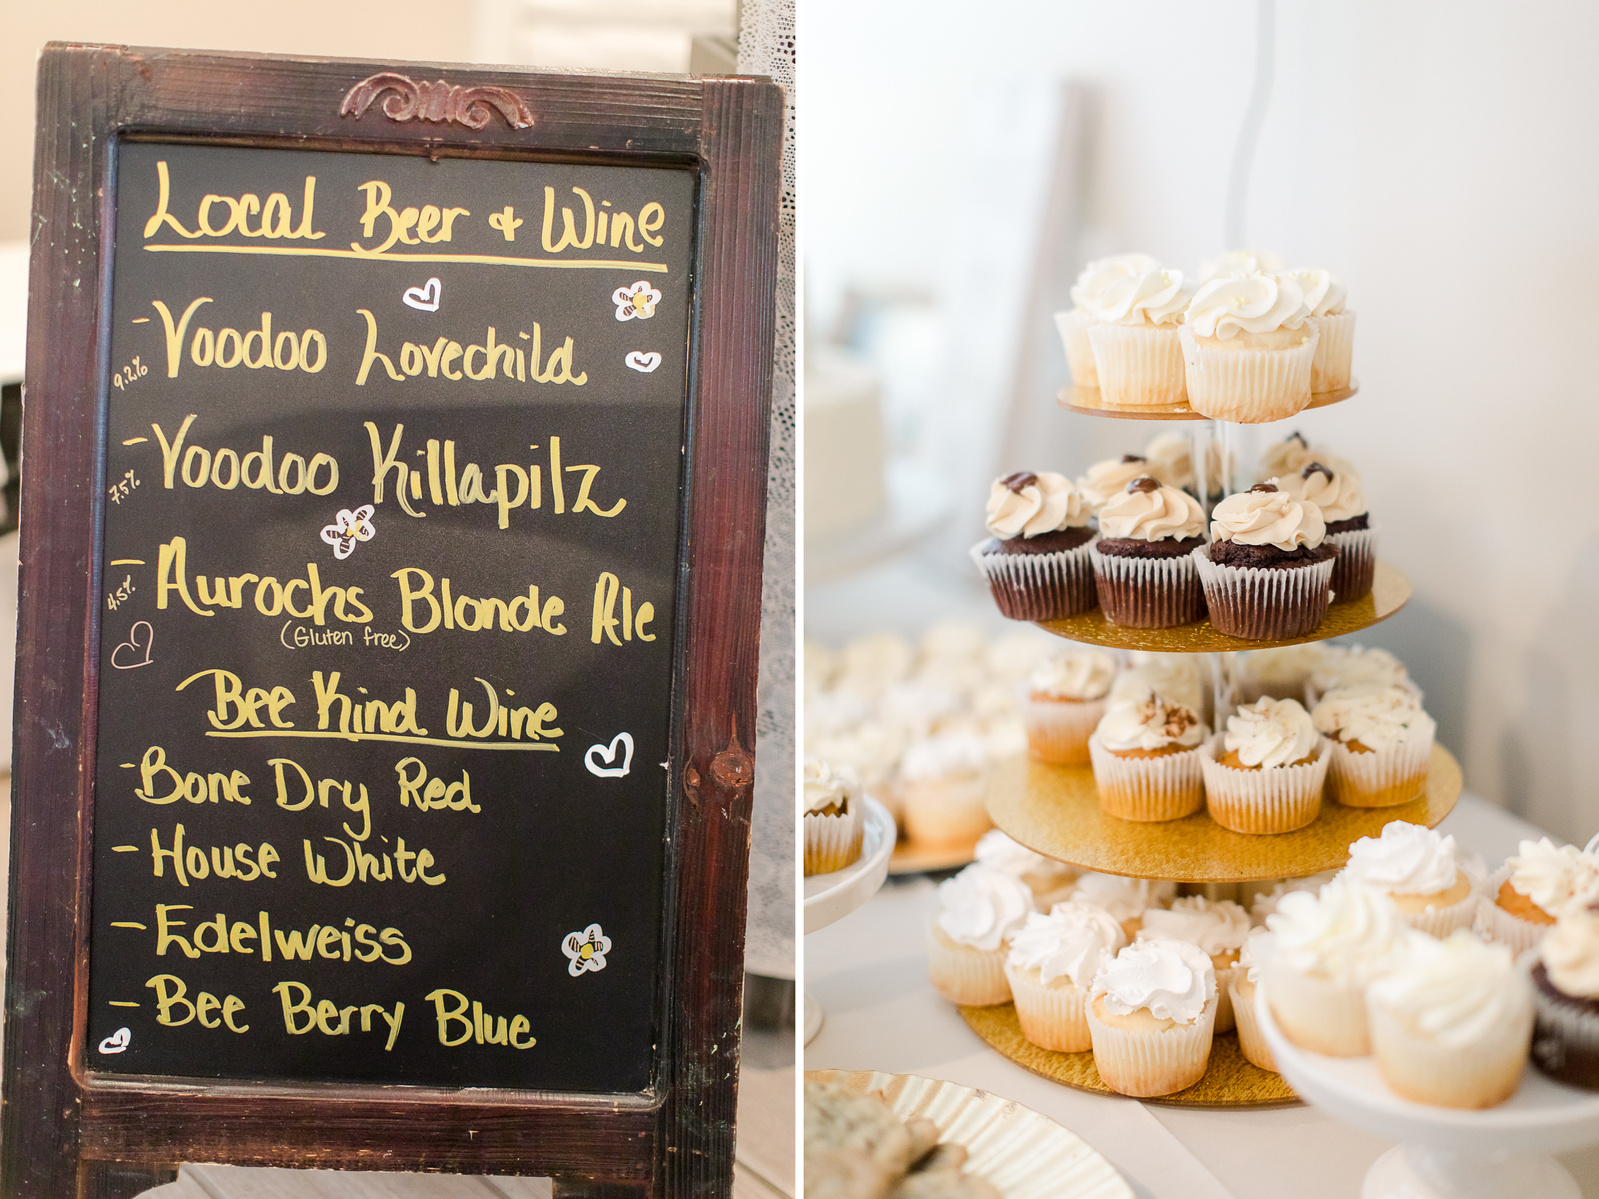 Local Beer & Wine
- Voodoo Lovechild
9.2%
- Voodoo Killapilz
7.5%
- Aurochs Blonde Ale
4.5%
(Gluten free)
Bee Kind Wine
- Bone Dry Red
- House White
- Edelweiss
- Bee Berry Blue